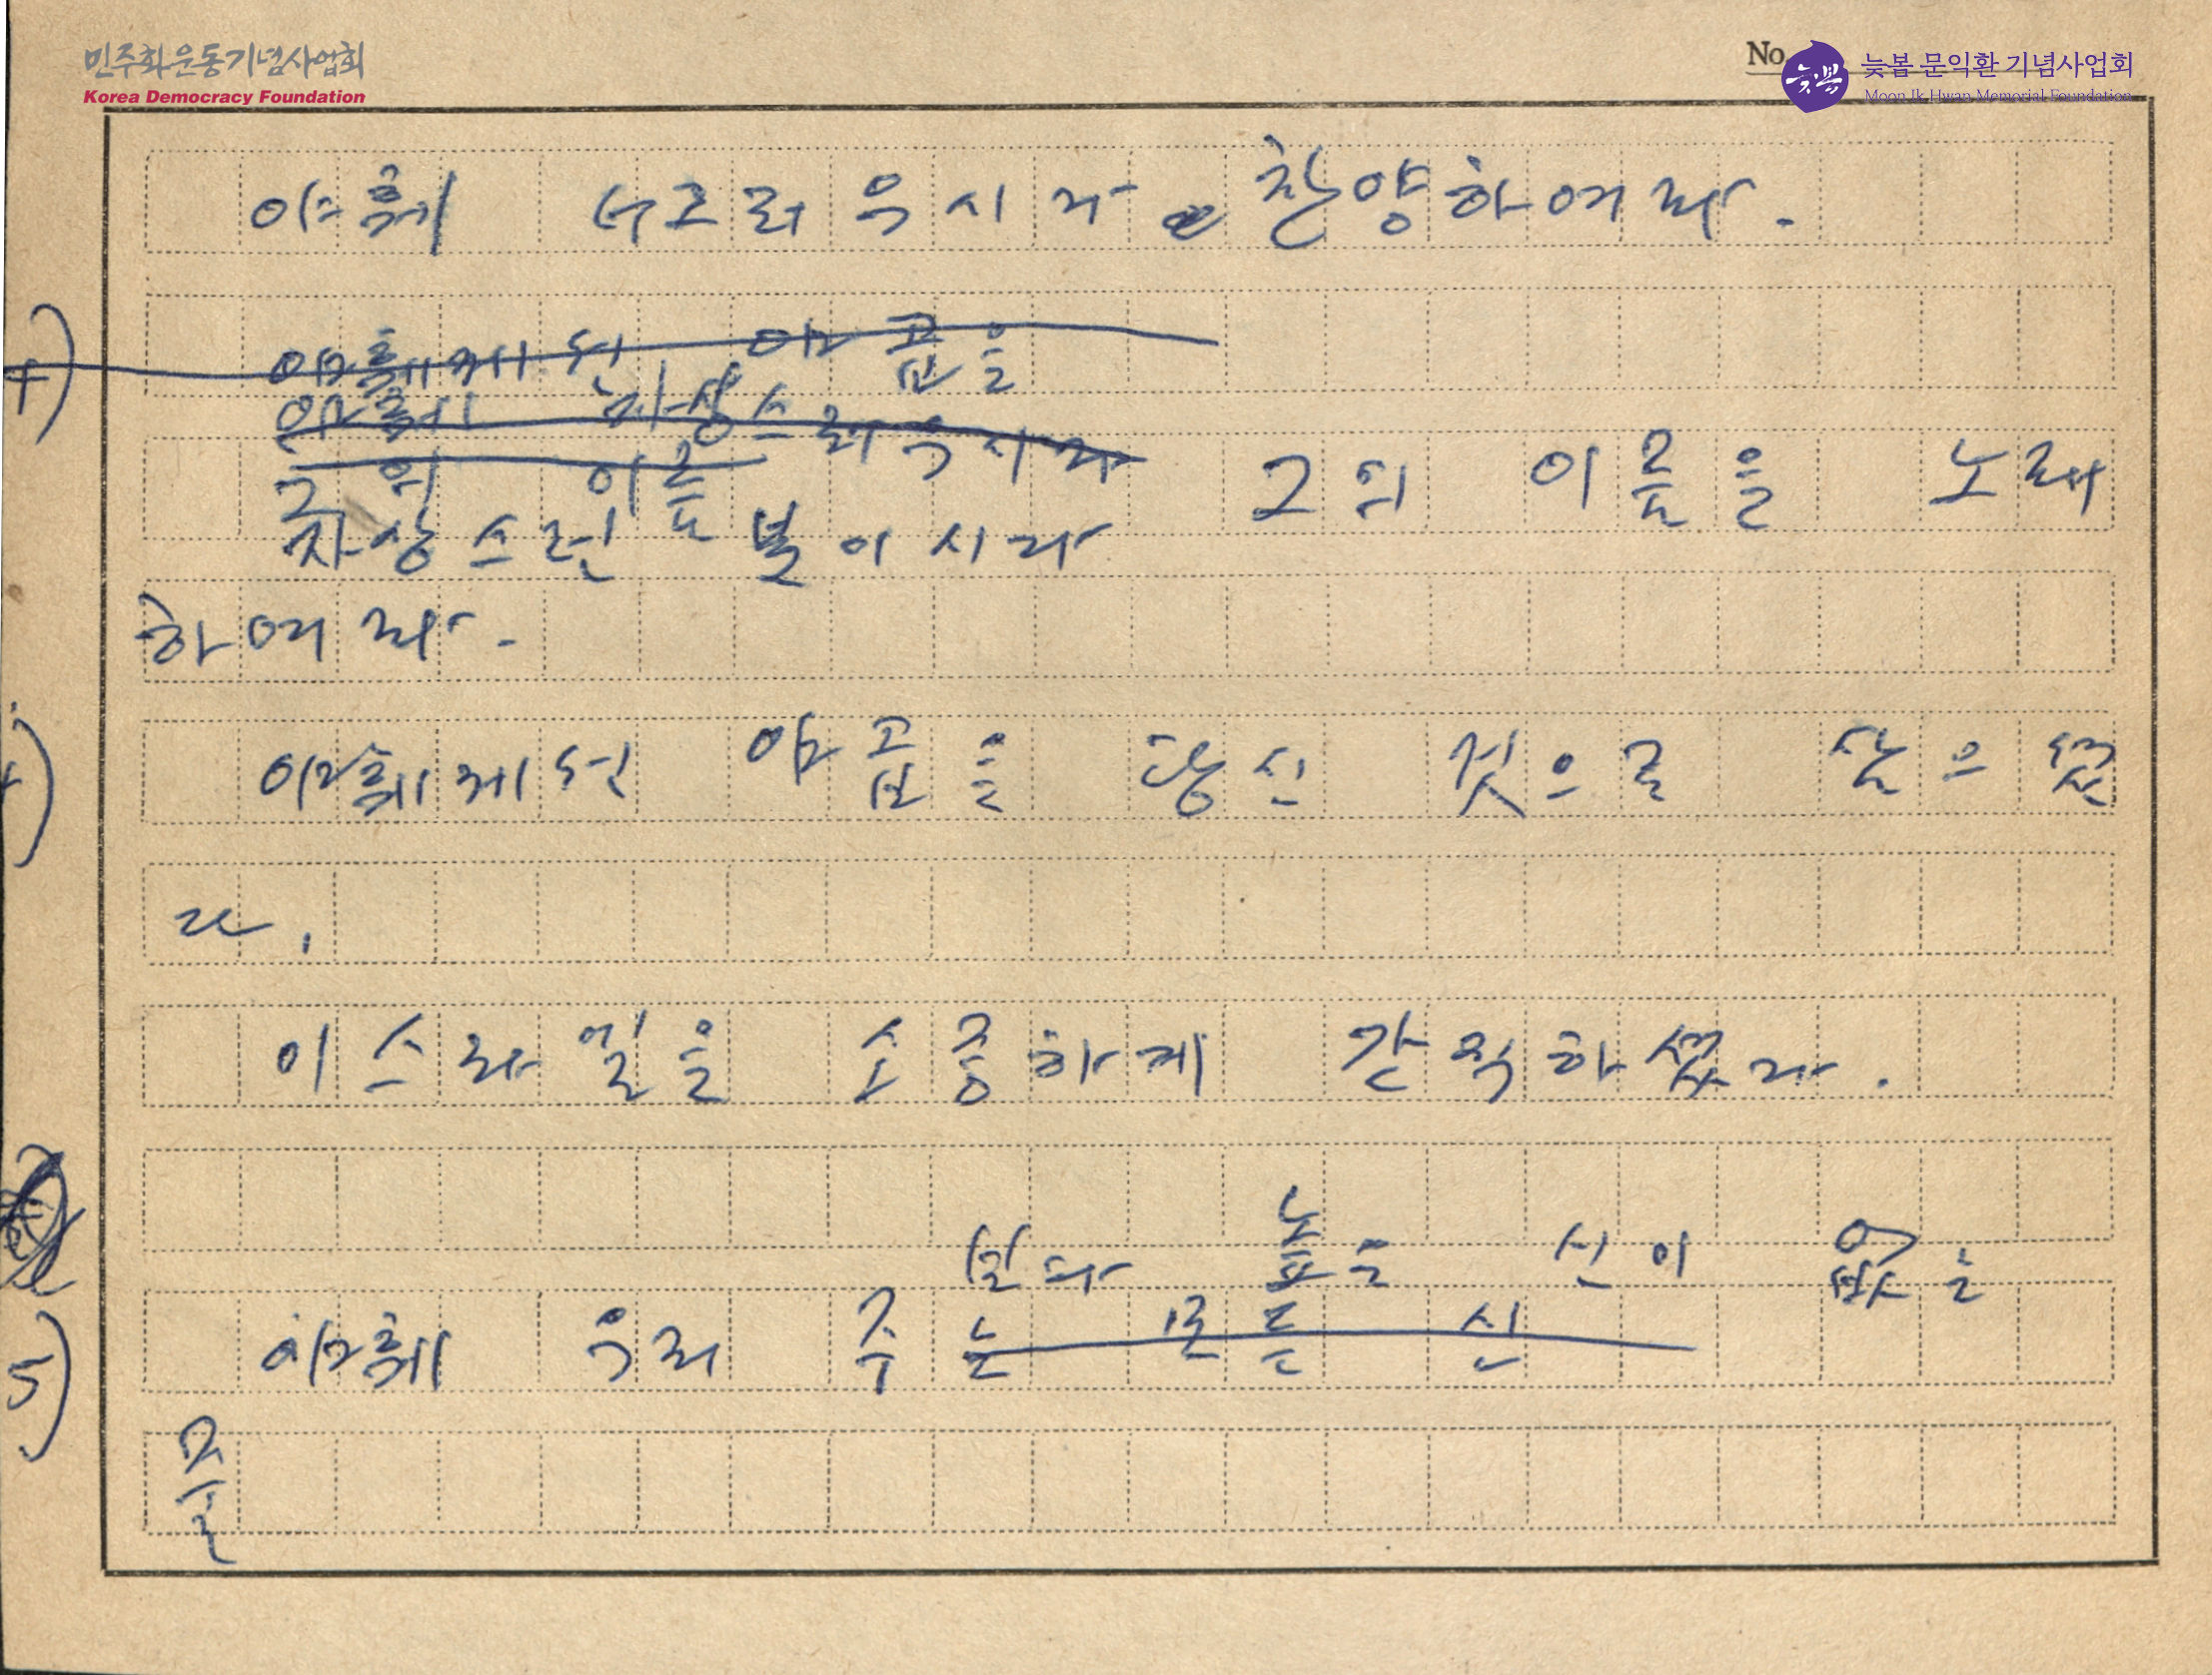 민주화운동기념사업회
Korea Democracy Foundation
No.
늦봄
늦봄 문익환 기념사업회
Moon Ik Hwan Memorial Foundation
야훼 너그러우시다 찬양하여라.
4)
야훼께선 야곱을
야훼 자상스러우시다
그의 이름
그의 이름을 노래
자상스런 분이시다
하여라.
4)
야훼께선 야곱을 당신 것으로 삼으셨
다.
이스라엘을 소중하게 간직하셨다.
보다 높은 신이 없는
5)
야훼 우리 주는 모든 신
줄